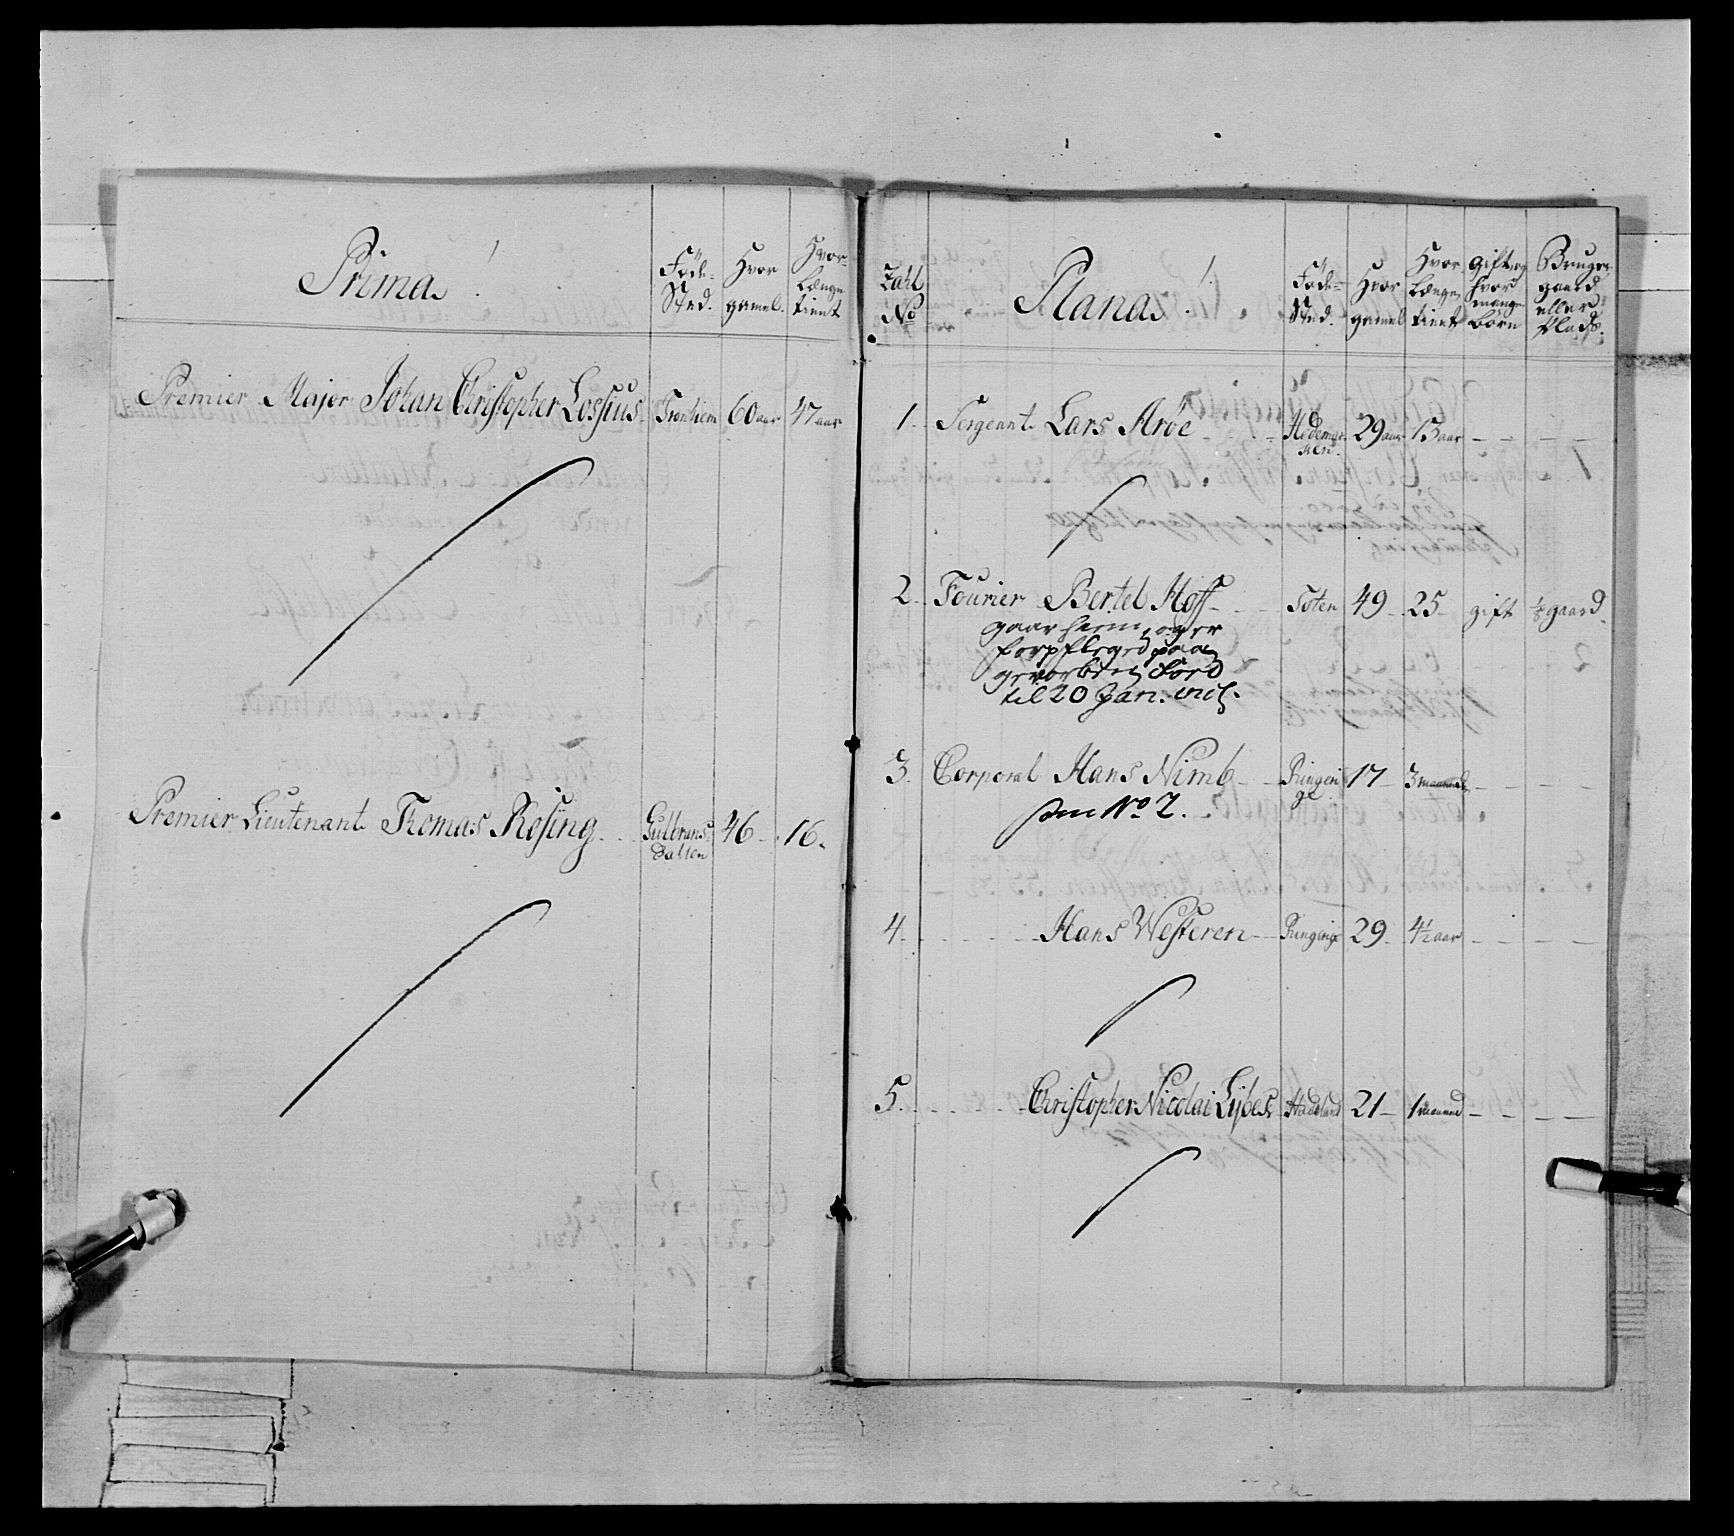 Prima.
Føde- Sted.
Hvor gamel.
Hvor- Længe tient
Premier Major Johan Christopher Lossius Tronhiem 60 aar 47 aar
Premier Lieutenant Thomas Rosing Gulbrans- dallen 46 16.
Zahl No
Plana.
Føde- Sted.
Hvor gamel
Hvor Længe tient
gift og hvor mange børn
Bruger gaard eller Plads.
1. Sergeant Lars Arøe Hedemar- ken. 29 aar 13 aar
2. Fourier Bertel Hoff Toten 49 25 gift ½ gaard.
gaar hiem, og er
forpfleged paa
gevorben Foed
til 20 Jan. incl.
3. Corporal Hans Nimb Ringeri ge 17 3 maaned
som No 2.
4. Hans Westeren Ringerige 29 4½ aar
5. Christopher Nicolai Lybes Hadeland 21 1 maaned